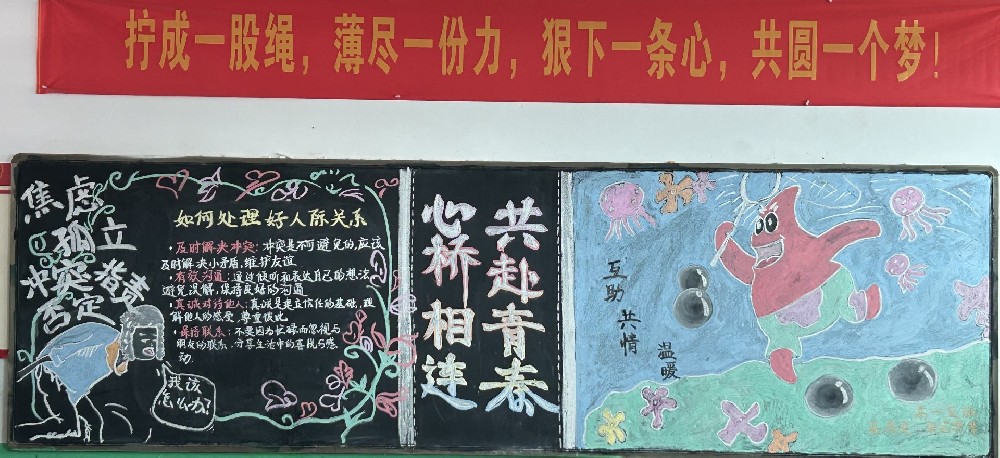 拧成一股绳，薄尽一份力，狠下一条心，共圆一个梦！
焦虑
孤立
冲突 指责
否定
我该
怎么办？
如何处理好人际关系
·及时解决冲突：冲突是不可避免的，应该
及时解决小矛盾，维护友谊
·有效沟通：通过倾听和表达自己的想法，
避免误解，保持良好的沟通
真诚对待他人：真诚是建立信任的基础，理
解他人的感受，尊重彼此。
·保持联系：不要因为忙碌而忽视与
朋友的联系，分享生活中的喜悦与感
动
心桥相连
共赴青春
互助
共情
温暖